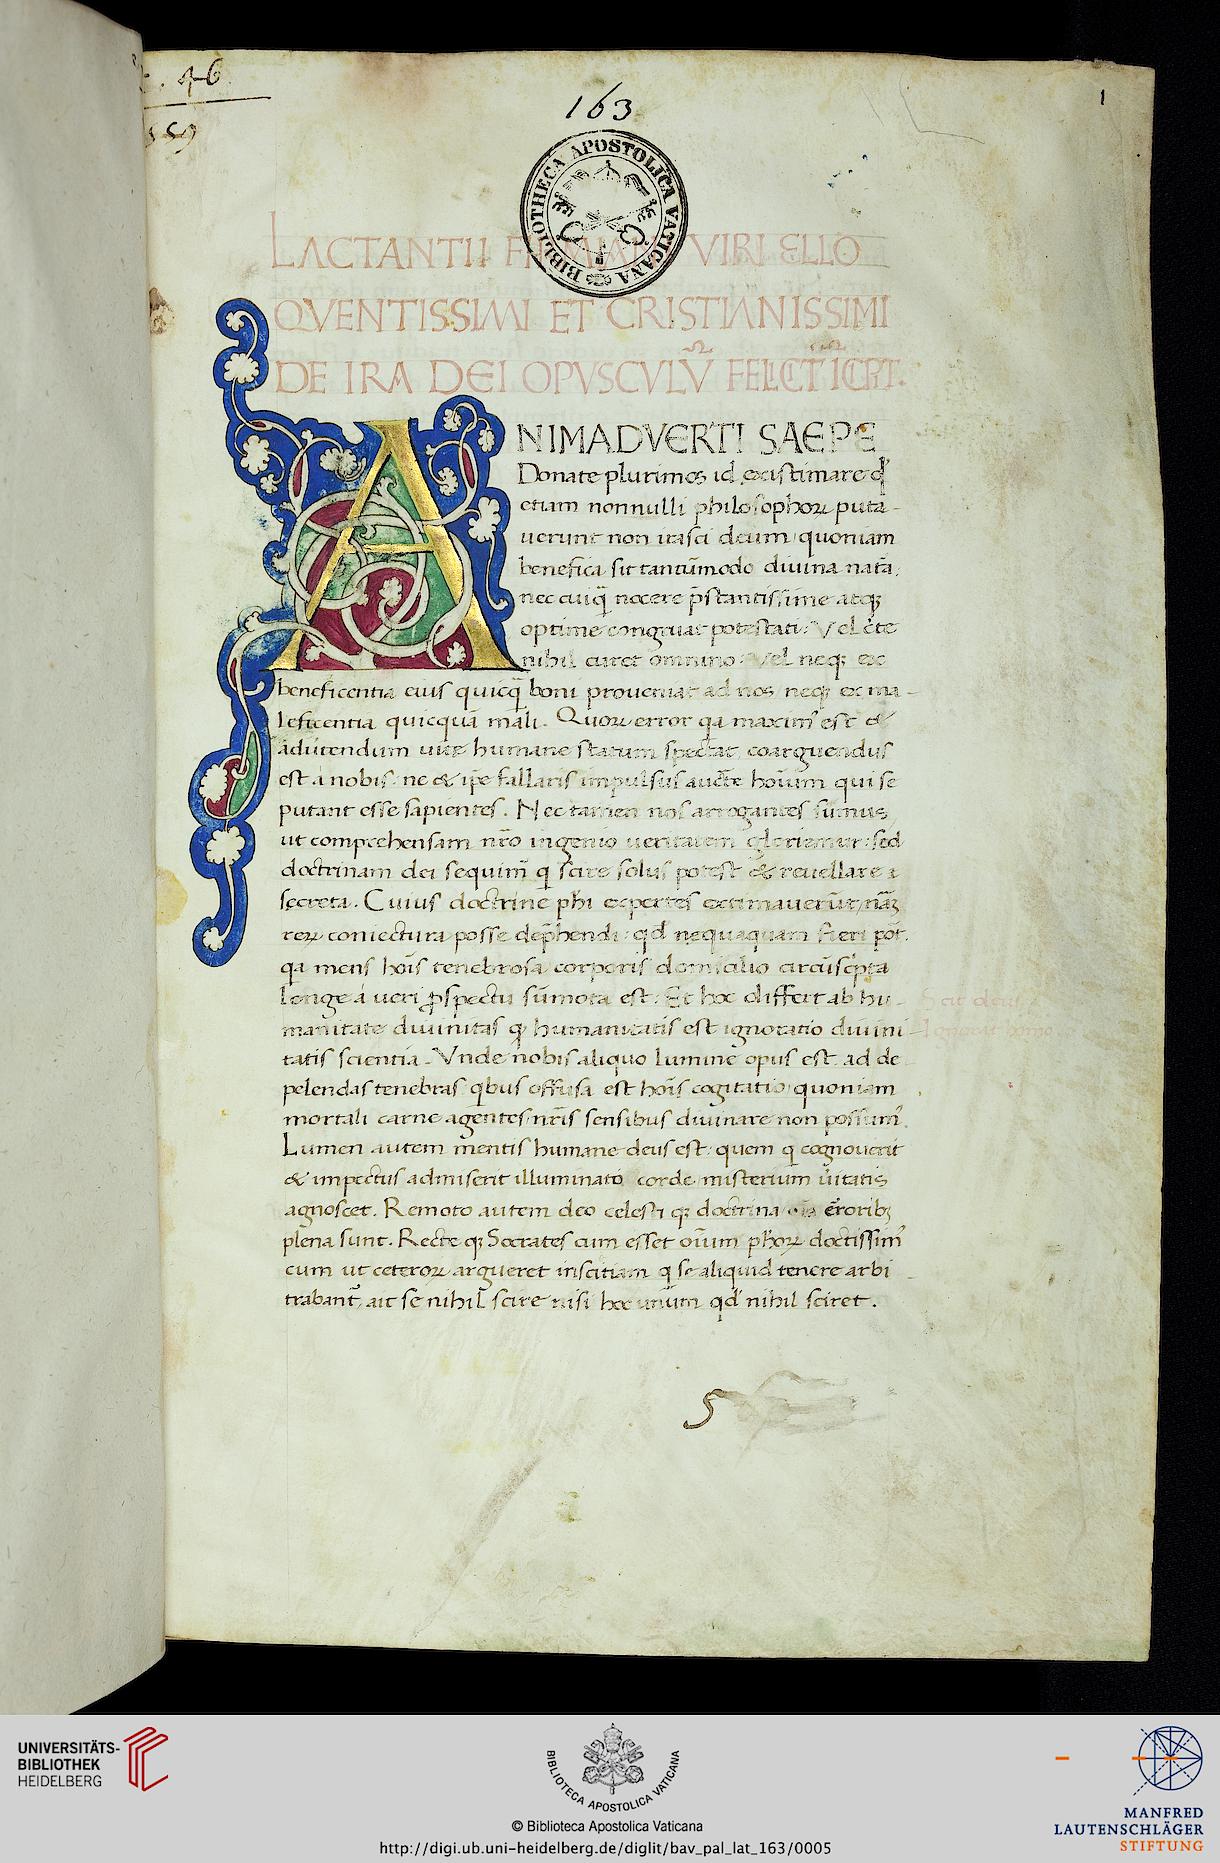 . 46
559
163
1
BIBLIOTHECA APOSTOLICA VATICANA
LACTANTII FIRMIANI VIRI ELLO
QVENTISSIMI ET CRISTIANISSIMI
DE IRA DEI OPVSCVLV̄ FELICT ICPIT.
ANIMADVERTI SAEPE
Donate plurimos id existimare q̄
etiam nonnulli philosophoꝝ puta-
uerunt non irasci deum quoniam
benefica sit tantūmodo diuina nat̄a,
nec cuiq̄ nocere p̄stantissime atqꝫ
optime congruat potestati. Vel c̄te
nihil curet omnino. Vel neqꝫ ex
beneficentia eius quicq̄ boni proueniat ad nos neqꝫ ex ma-
leficentia quicquā mali. Quoꝝ error qa maxim᾽ est &
ad
uite humane statum spectat coarguendus
est a nobis. ne & ip̄e fallaris impulsus auct̄e hoīum qui se
putant esse sapientes. Nec tamen nos arrogantes sumus
ut comprehensam nr̄o ingenio ueritatem gloriemur. sed
doctrinam dei sequim᾽ q̄ scire solus potest & reuellare
secreta. Cuius doctrine ph̄i expertes extimauerūt
reꝝ coniectura posse dep̄hendi. qd̄ nequaquam fieri pōt.
qa mens hoīs tenebroso corporis domicilio circūsc̄pta
longe a ueri ꝑspectu sūmota est. Et hoc differt ab hu-
manitate diuinitas qꝫ humanitatis est ignoratio diuini
tatis scientia. Vnde nobis aliquo lumine opus est ad de
pelendas tenebras qbus offusa est hoīs cogitatio quoniam
mortali carne agentes nr̄is sensibus diuinare non possum᾽.
Lumen autem mentis humane deus est. quem q cognouerit
& in pectus admiserit illuminato corde misterium ūitatis
agnoscet. Remoto autem deo celesti qꝫ doctrina oīa erroribꝫ
plena sunt. Recte qꝫ Socrates cum esset oīum ph̄oꝝ doctissim᾽
cum ut ceteroꝝ argueret inscitiam q se aliquid tenere arbi
trabant᾽, ait se nihil scire nisi hoc unum qd̄ nihil sciret.
Scit deus
5
UNIVERSITÄTS-
BIBLIOTHEK
HEIDELBERG
BIBLIOTECA APOSTOLICA VATICANA
© Biblioteca Apostolica Vaticana
http://digi.ub.uni-heidelberg.de/diglit/bav_pal_lat_163/0005
MANFRED
LAUTENSCHLÄGER
STIFTUNG